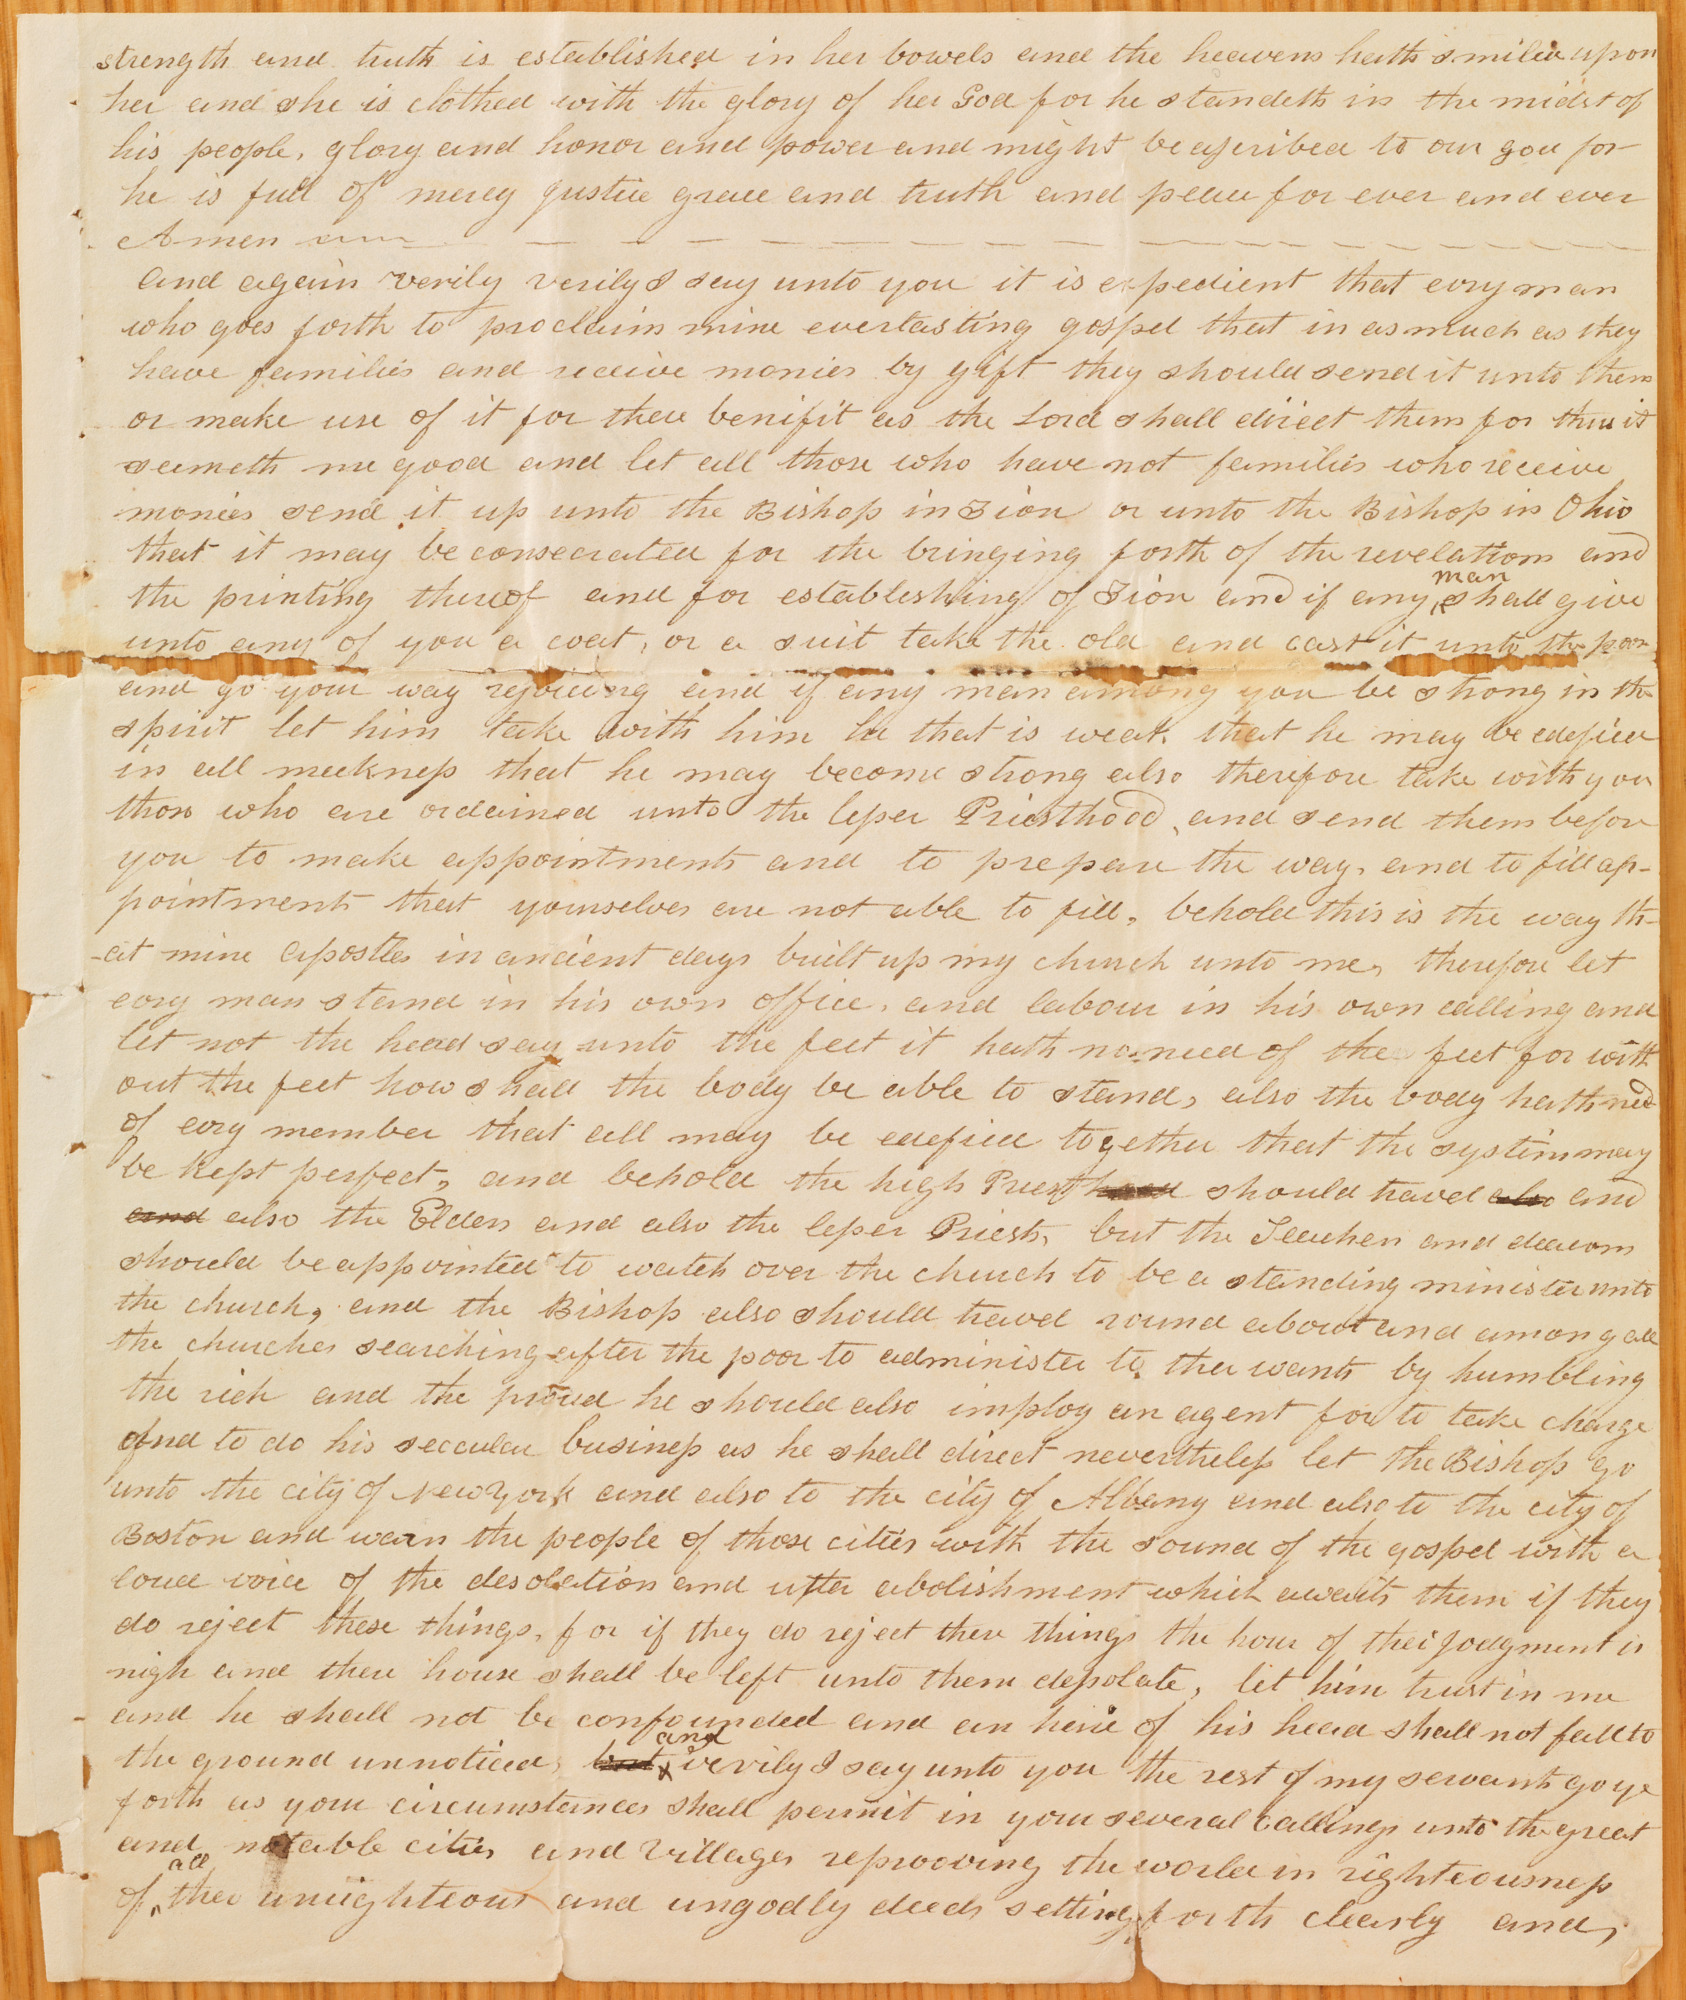 strength and truth is established in her bowels and the heavens hath smiled upon
her and she is clothed with the glory of her God for he standeth in the midst of
his people, glory and honor and power and might be ascribed to our god for
he is full of mercy justice grace and truth and peace for ever and ever
Amen
and again verily verily I say unto you it is expedient that evry man
who goes forth to proclaim mine everlasting gospel that in as much as they
have families and receive monies by gift they should send it unto them
or make use of it for there benifit as the Lord shall direct them for thus it
seemeth me good and let all those who have not families who receive
monies send it up unto the Bishop in Zion or unto the Bishop in Ohio
that it may be consecrated for the bringing forth of the revelations and
the printing thereof and for establishing of Zion and if any man shall give
unto any of you a coat, or a suit take the old and cast it unto the poor
and go your way rejoiceing and if any man among you be strong in the
spirit let him take with him he that is weak that he may be edefied
in all meekness that he may become strong also therefore take with you
those who are ordained unto the lesser Priesthood, and send them before
you to make appointments and to prepare the way, and to fill ap-
pointments that yourselves are not able to fill, behold this is the way th-
-at mine apostles in ancient days built up my church unto me, therefore let
evry man stand in his own office, and labour in his own calling and
let not the head say unto the feet it hath no need of the feet for with
out the feet how shall the body be able to stand, also the body hath need
of evry member that all may be edefied together that the systim may
be kept perfect, and behold the high Priesthood should travel also and
and also the Elders and also the lesser Priests, but the Teachers and deacons
should be appointed to watch over the church to be a standing minister unto
the church, and the Bishop also should travel round about and among all
the churches searching after the poor to administer to ther wants by humbling
the rich and the proud he should also imploy an agent for to take charge
and to do his seccular business as he shall direct nevertheless let the Bishop go
unto the city of New York and also to the city of Albany and also to the city of
Boston and warn the people of those cities with the sound of the gospel with a
loud voice of the desolation and utter abolishment which awaits them if they
do reject these things, for if they do reject these things the hour of thei jodgment is
nigh and there house shall be left unto them desolate, let him trust in me
and he shall not be confounded and an heire of his head shall not fall to
the ground unnoticed, but and verily I say unto you the rest of my servants go ye
forth as your circumstances shall permit in your several callings unto the great
and notable cities and villages reprooving the world in righteousness
of all ther unrighteous and ungodly deeds setting forth clearly and,